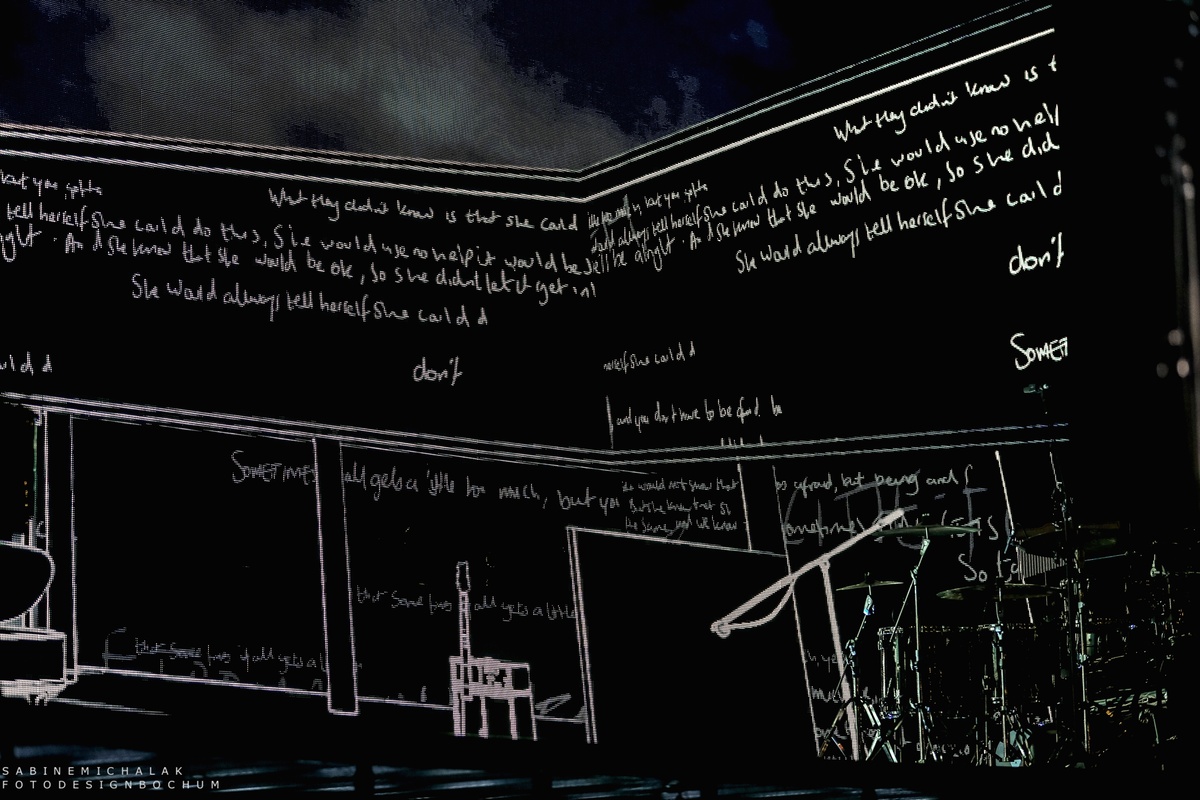 What they didn't know is t
but you gotta
What they didn't know is that she could
tell herself she could do this, She would use no help it would be
alright. And she knew that she would be ok, so she didn't let it get in
She would always tell herself she could d
little too much, but you gotta
would always tell herself she could do this, She would use no help
ll be alright. And she knew that she would be ok, so she did
She would always tell herself she could
don't
herself she could d
SOMET
uld d
don't
and you don't have to be afraid. 
SOMETIMES all gets a little too much, but you
he would not show that
But she knew that
the same, and we know
afraid, but being
Sometimes
So
that Some times all gets a little
that some times it all gets a l
SABINEMICHALAK
FOTODESIGNBOCHUM